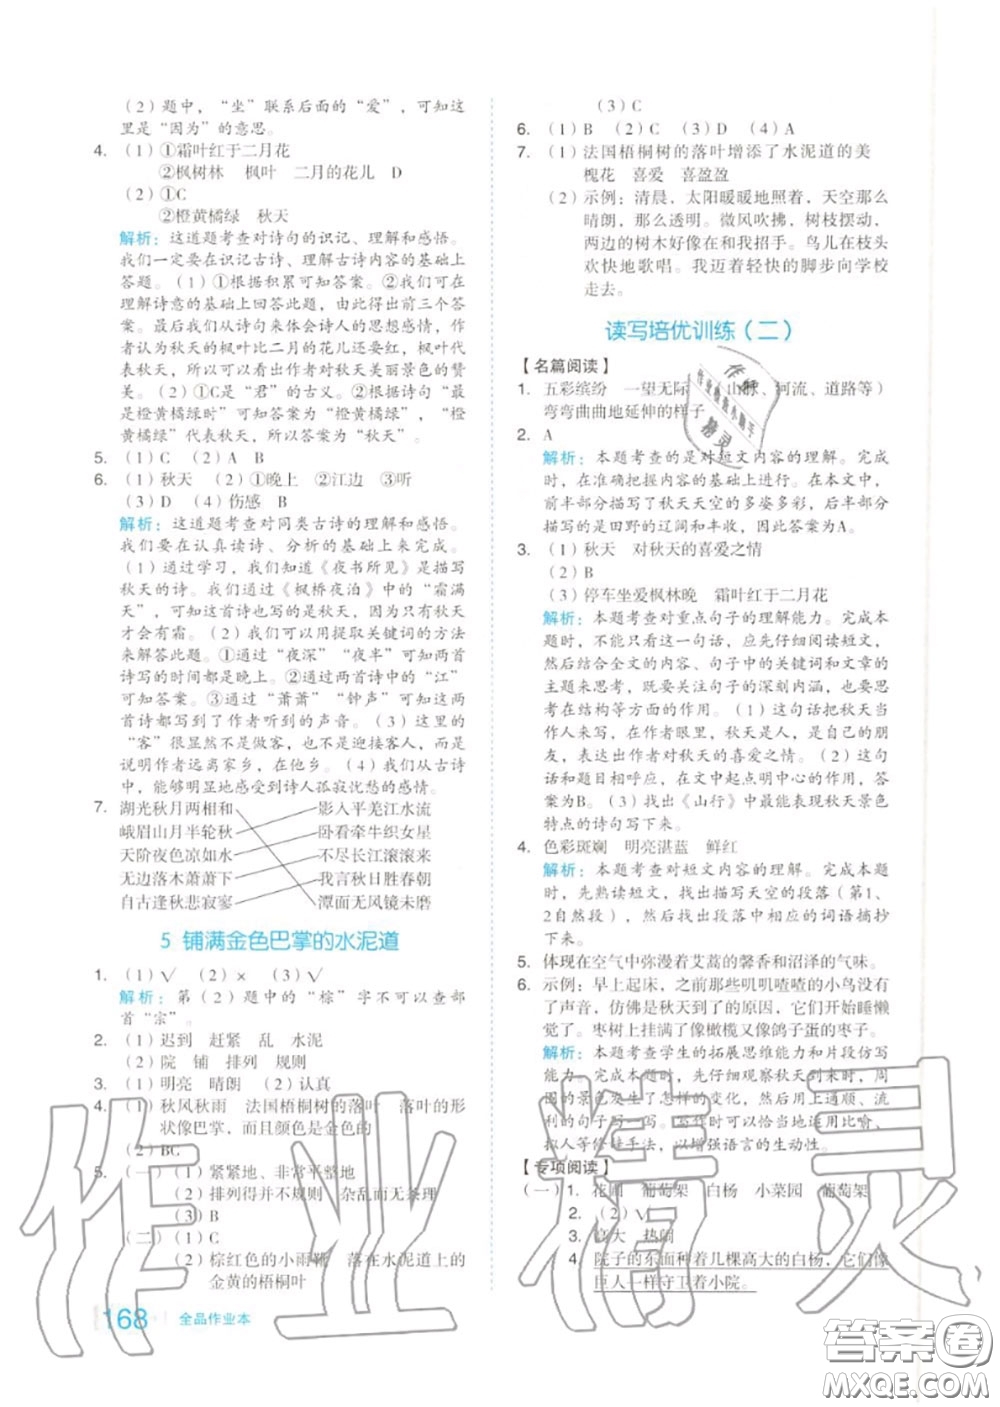 （2）题中，“坐”联系后面的“爱”，可知这
里是“因为”的意思。
4. （1）①霜叶红于二月花
②枫树林　枫叶　二月的花儿　D
（2）①C
②橙黄橘绿　秋天
解析：这道题考查对诗句的识记、理解和感悟。
我们一定要在识记古诗、理解古诗内容的基础上
答题。（1）①根据积累可知答案。②我们可在
理解诗意的基础上回答此题，由此得出前三个答
案。最后我们从诗句来体会诗人的思想感情，作
者认为秋天的枫叶比二月的花儿还要红，枫叶代
表秋天，所以可以看出作者对秋天美丽景色的赞
美。（2）①C是“君”的古义。②根据诗句“最
是橙黄橘绿时”可知答案为“橙黄橘绿”，“橙
黄橘绿”代表秋天，所以答案为“秋天”。
5. （1）C　（2）A　B
6. （1）秋天　（2）①晚上　②江边　③听
（3）D　（4）伤感　B
解析：这道题考查对同类古诗的理解和感悟。
我们要在认真读诗、分析的基础上来完成。
（1）通过学习，我们知道《夜书所见》是描写
秋天的诗。我们通过《枫桥夜泊》中的“霜满
天”，可知这首诗也写的是秋天，因为只有秋天
才会有霜。（2）我们可以用提取关键词的方法
来解答此题。①通过“夜深”“夜半”可知两首
诗写的时间都是晚上。②通过两首诗中的“江”
可知答案。③通过“萧萧”“钟声”可知这两
首诗都写到了作者听到的声音。（3）这里的
“客”很显然不是做客，也不是迎接客人，而是
说明作者远离家乡，在他乡。（4）从古诗
中，能够明显地感受到诗人孤寂忧愁的感情。
7. 湖光秋月两相和　影入平羌江水流
峨眉山月半轮秋　卧看牵牛织女星
天阶夜色凉如水　不尽长江滚滚来
无边落木萧萧下　我言秋日胜春朝
自古逢秋悲寂寥　潭面无风镜未磨
5　铺满金色巴掌的水泥道
1. （1）√　（2）×　（3）√
解析：第（2）题中的“棕”字不可以查部
首“宗”。
2. （1）迟到　赶紧　乱　水泥
（2）院　铺　排列　规则
3. （1）明亮　晴朗　（2）认真
4. （1）秋风秋雨　法国梧桐树的落叶　落叶的形
状像巴掌，而且颜色是金色的
（2）BC
5. （一）（1）紧紧地、非常平整地
（2）排列得并不规则　杂乱而无条理
（3）B
（二）（1）C
（2）棕红色的小雨靴　落在水泥道上的
金黄的梧桐叶
168　全品作业本
（3）C
6. （1）B　（2）C　（3）D　（4）A
7. （1）法国梧桐树的落叶增添了水泥道的美
槐花　喜爱　喜盈盈
（2）示例：清晨，太阳暖暖地照着，天空那么
晴朗，那么透明。微风吹拂，树枝摆动，
两边的树木好像在和我招手。鸟儿在枝头
欢快地歌唱。我迈着轻快的脚步向学校
走去。
读写培优训练（二）
【名篇阅读】
1. 五彩缤纷　一望无际　（山脉、河流、道路等）
弯弯曲曲地延伸的样子
2. A
解析：本题考查的是对短文内容的理解。完成
时，在准确把握内容的基础上进行。在本文中，
前半部分描写了秋天天空的多姿多彩，后半部分
描写的是田野的辽阔和丰收，因此答案为A。
3. （1）秋天　对秋天的喜爱之情
（2）B
（3）停车坐爱枫林晚　霜叶红于二月花
解析：本题考查对重点句子的理解能力。完成本
题时，不能只看这一句话，应先仔细阅读短文，
然后结合全文的内容、句子中的关键词和文章的
主题来思考，既要关注句子的深刻内涵，还要考
虑在结构等方面的作用。（1）这句话把秋天当
作人来写，在作者眼里，秋天是人，是自己的朋
友，表达出作者对秋天的喜爱之情。（2）这句
话和题目相呼应，在文中起点明中心的作用，答案
为B。（3）找出《山行》中最能表现秋天景色
特点的诗句写下来。
4. 色彩斑斓　明亮湛蓝　鲜红
解析：本题考查对短文内容的理解。完成本题
时，先熟读短文，找出描写天空的段落（第1、
2自然段），然后找出段落中相应的词语摘抄
下来。
5. 体现在空气中弥漫着艾蒿的馨香和沼泽的气味。
6. 示例：早上起床，之前那些叽叽喳喳的小鸟没有
了声音，仿佛是秋天到了的原因，它们开始睡懒
觉了。枣树上挂满了像橄榄又像鸽子蛋的枣子。
解析：本题考查学生的拓展思维能力和片段仿写
能力。完成本题时，先仔细观察秋天到来时，周
围的景色发生了怎样的变化，然后用上通顺、流
利的句子写一写。写的时候恰当地运用比喻、
拟人等修辞手法，以增强语言的生动性。
【专项阅读】
（一）1. 花圃　葡萄架　白杨　小菜园　葡萄架
2. （2）√
3. 高大　热闹
4. 院子的东面种着几棵高大的白杨，它们像
巨人一样守卫着小院。
作业精灵
答案圈
MXQE.COM